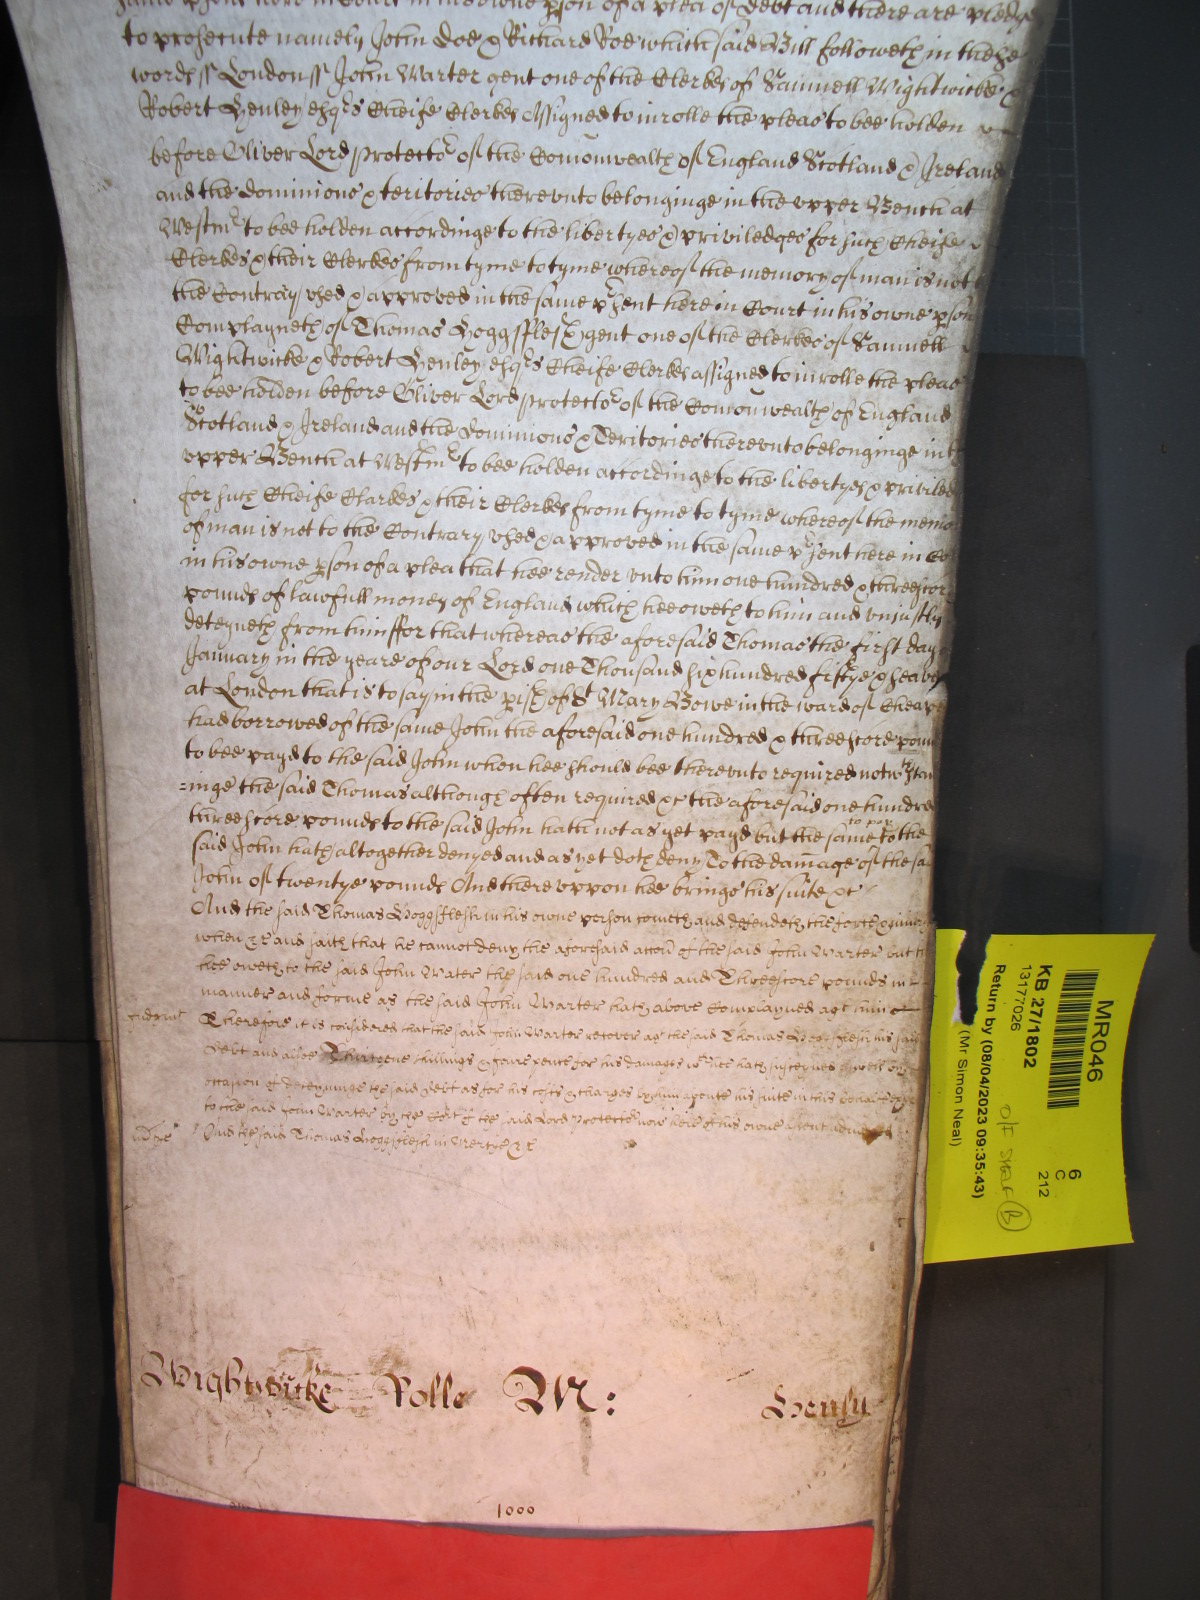 same psent here in Court in his owne pson of a plea of debt and there are pledges
to prosecute namely John Doe & Richard Roe which said Bill followeth in these
words ss London ss John Warter gent one of the Clerkes of Samuell Wightwicke &
Robert Henley esqrs Cheife Clerkes Assigned to inrolle the pleas to bee holden
before Oliver Lord protector of the Comonwealth of England Scotland & Ireland
and the dominions & teritories therevnto belonginge in the vpper Bench at
Westmr to bee holden accordinge to the libertyes & priviledges for such Cheife
Clerkes & their Clerkes from tyme to tyme whereof the memory of man is not
the Contrary vsed & approved in the same psent here in Court in his owne pson
Complayneth of Thomas Hoggsflesh gent one of the Clerkes of Samuell
Wightwicke & Robert Henley esqrs Cheife Clerkes assigned to inrolle the pleas
to bee holden before Oliver Lord protector of the Comonwealth of England
Scotland & Ireland and the Dominions & Teritories therevnto belonginge in th
vpper Bench at Westmr to bee holden accordinge to the libertyes & priviled
for such Cheife Clarkes & their Clerkes from tyme to tyme whereof the memo
of man is not to the Contrary vsed & approved in the same psent here in Co
in his owne pson of a plea that hee render vnto him one hundred & threescor
pounds of lawfull money of England which hee oweth to him and vniustly
deteyneth from him ffor that whereas the aforesaid Thomas the first day
January in the yeare of our Lord one Thousand six hundred fiftye & seaven
at London that is to say in the pish of St Mary Bowe in the ward of Cheape
had borrowed of the same John the aforesaid one hundred & threescore poun
to bee payd to the said John when hee should bee therevnto required notwthstan
=inge the said Thomas although often required &c the aforesaid one hundred
threescore pounds to the said John hath not as yet payd but the same to pay to the
said John hath altogether denyed and as yet doth deny To the damage of the sa
John of twentye pounds And therevppon hee brings his suite &c
And the said Thomas Hoggsflesh in his owne person cometh and defendeth the force & iniury
when &c and saith that he cannot deny the aforesaid accon of the said John Warter but th
hee oweth to the said John Water the said one hundred and Threescore pounds in
manner and forme as the said John Warter hath above Complayned agt him
Therefore it is considered that the said John Warter recover agt the said Thomas Hoggsflesh his said
debt and alsoe Thirteene shillings & foure pence for his damages wch hee hath susteyned
occasion of deteyninge the said debt as for his costs & charges by him about his suite in this behalf
to the said John Warter by the Cort of the said Lord Protector now here of his owne Assent
And the said Thomas Hoggsflesh in Mercye &c
Wightwicke Rolle M: Henly
1000
MR046
6
C
212
KB 27/1802
13177026
O/F SHELF B
Return by (08/04/2023 09:35:43)
(Mr Simon Neal)